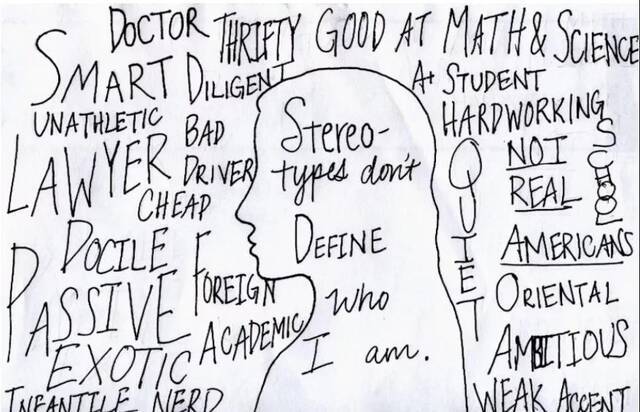 DOCTOR THRIFTY GOOD AT MATH & SCIENCE
SMART DILIGENT
A+ STUDENT
UNATHLETIC
BAD
DRIVER
HARDWORKING
LAWYER
CHEAP
DOCILE
PASSIVE
FOREIGN
EXOTIC
ACADEMIC
INFANTILE NERD
Stereo-
types don't
DEFINE
who
I am.
QUIET
NOT
REAL
AMERICANS
ORIENTAL
AMBITIOUS
WEAK ACCENT